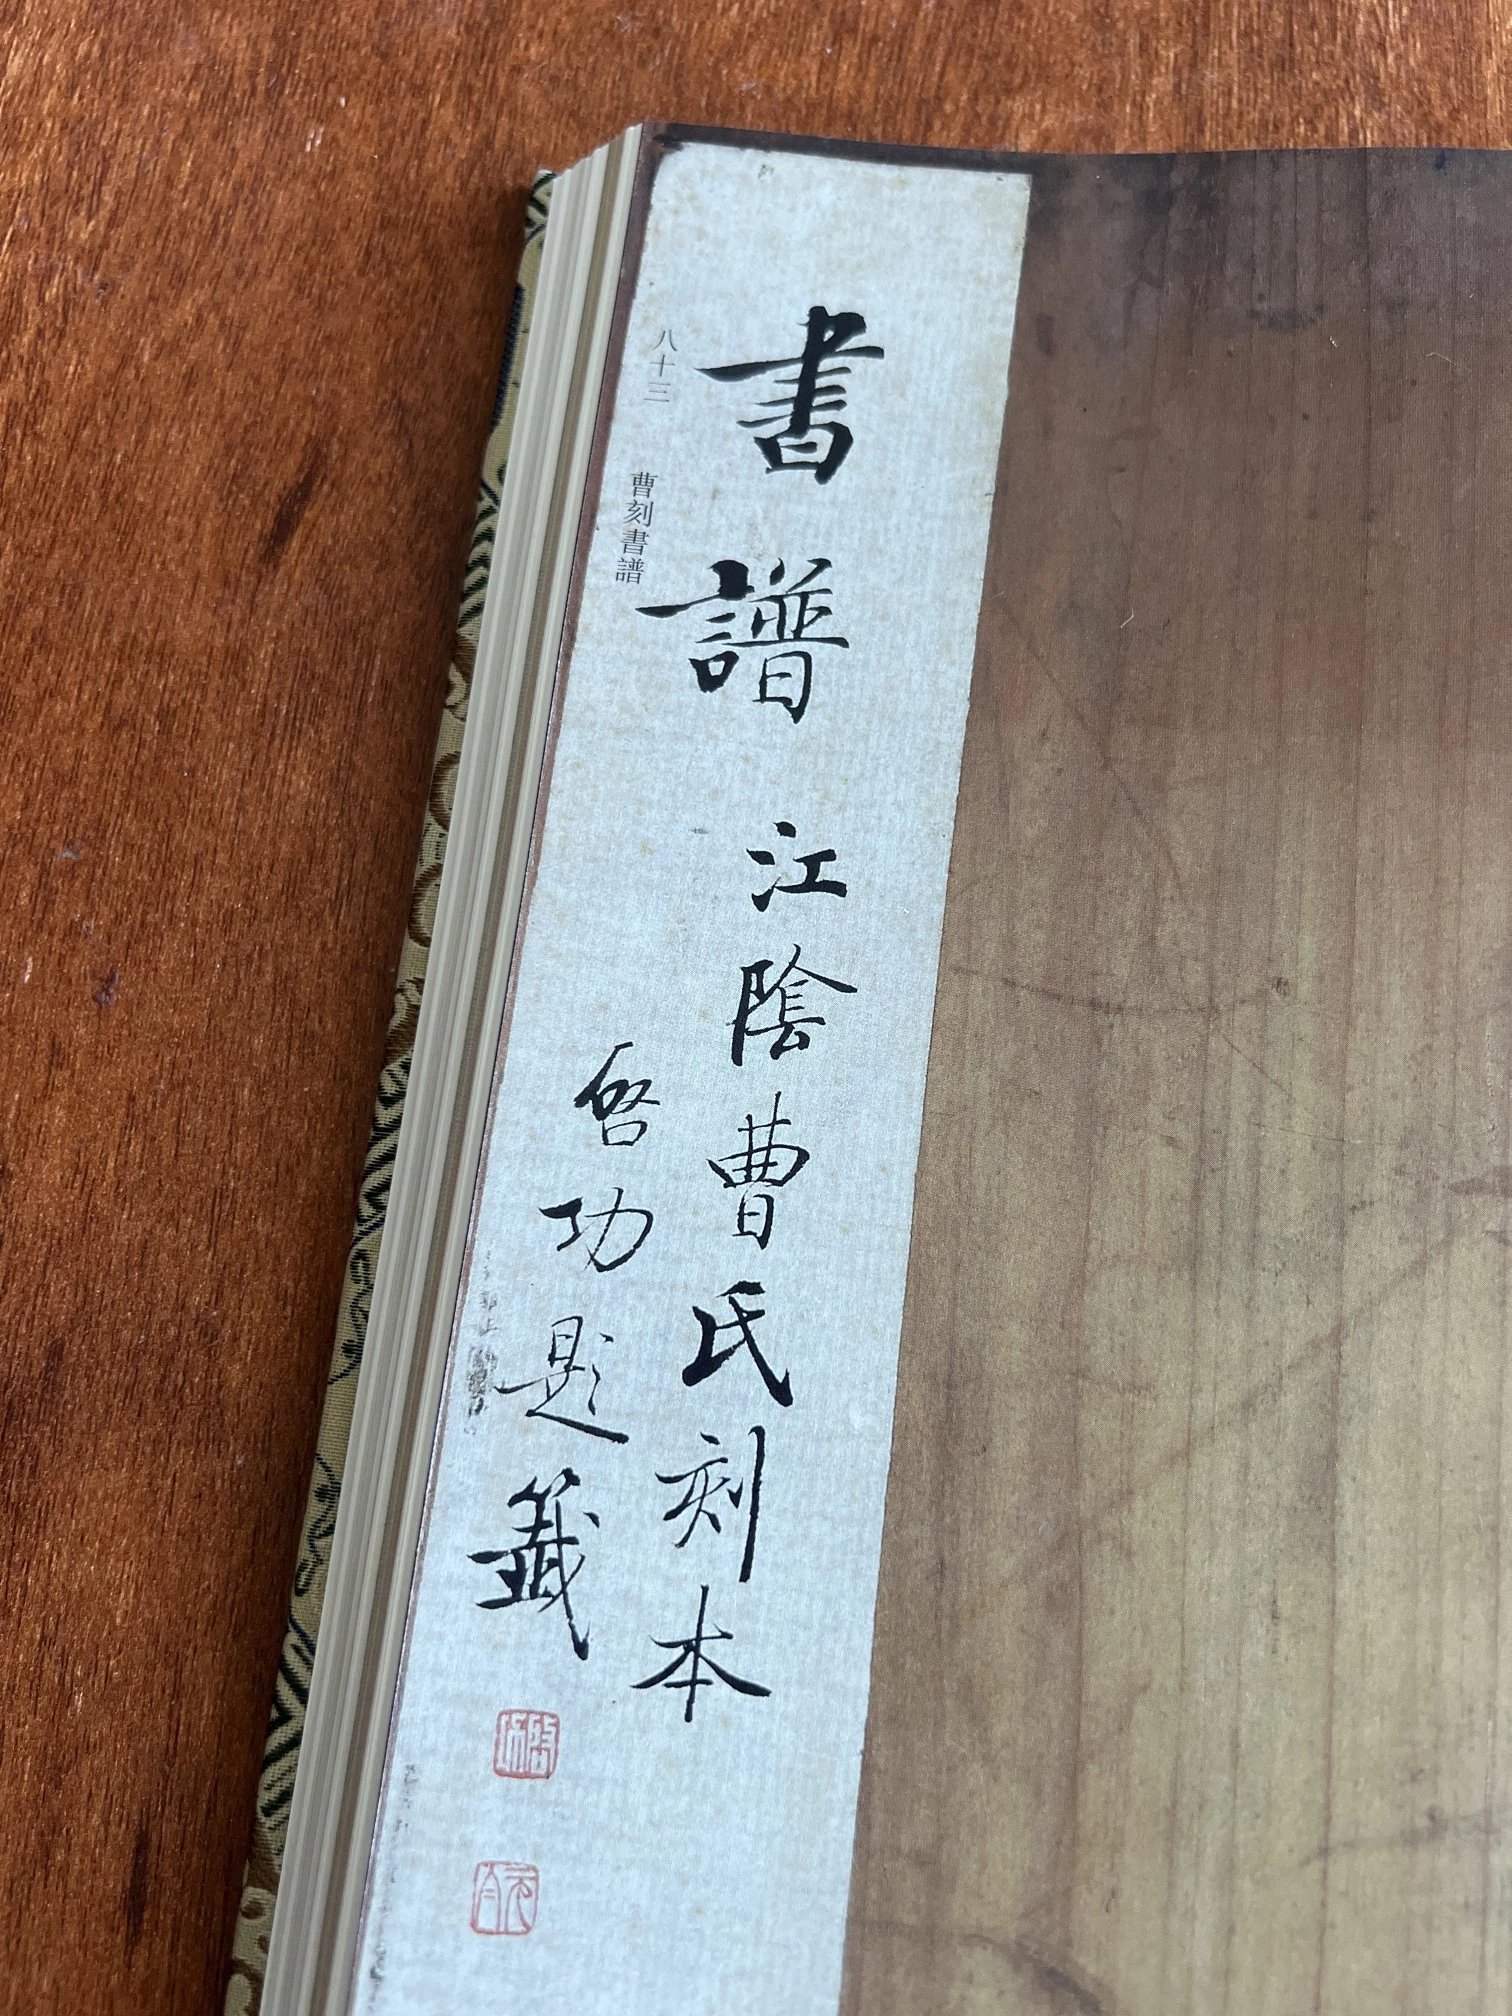 書譜 江陰曹氏刻本
啓功題籤
八十三 曹刻書譜
啓功
元白